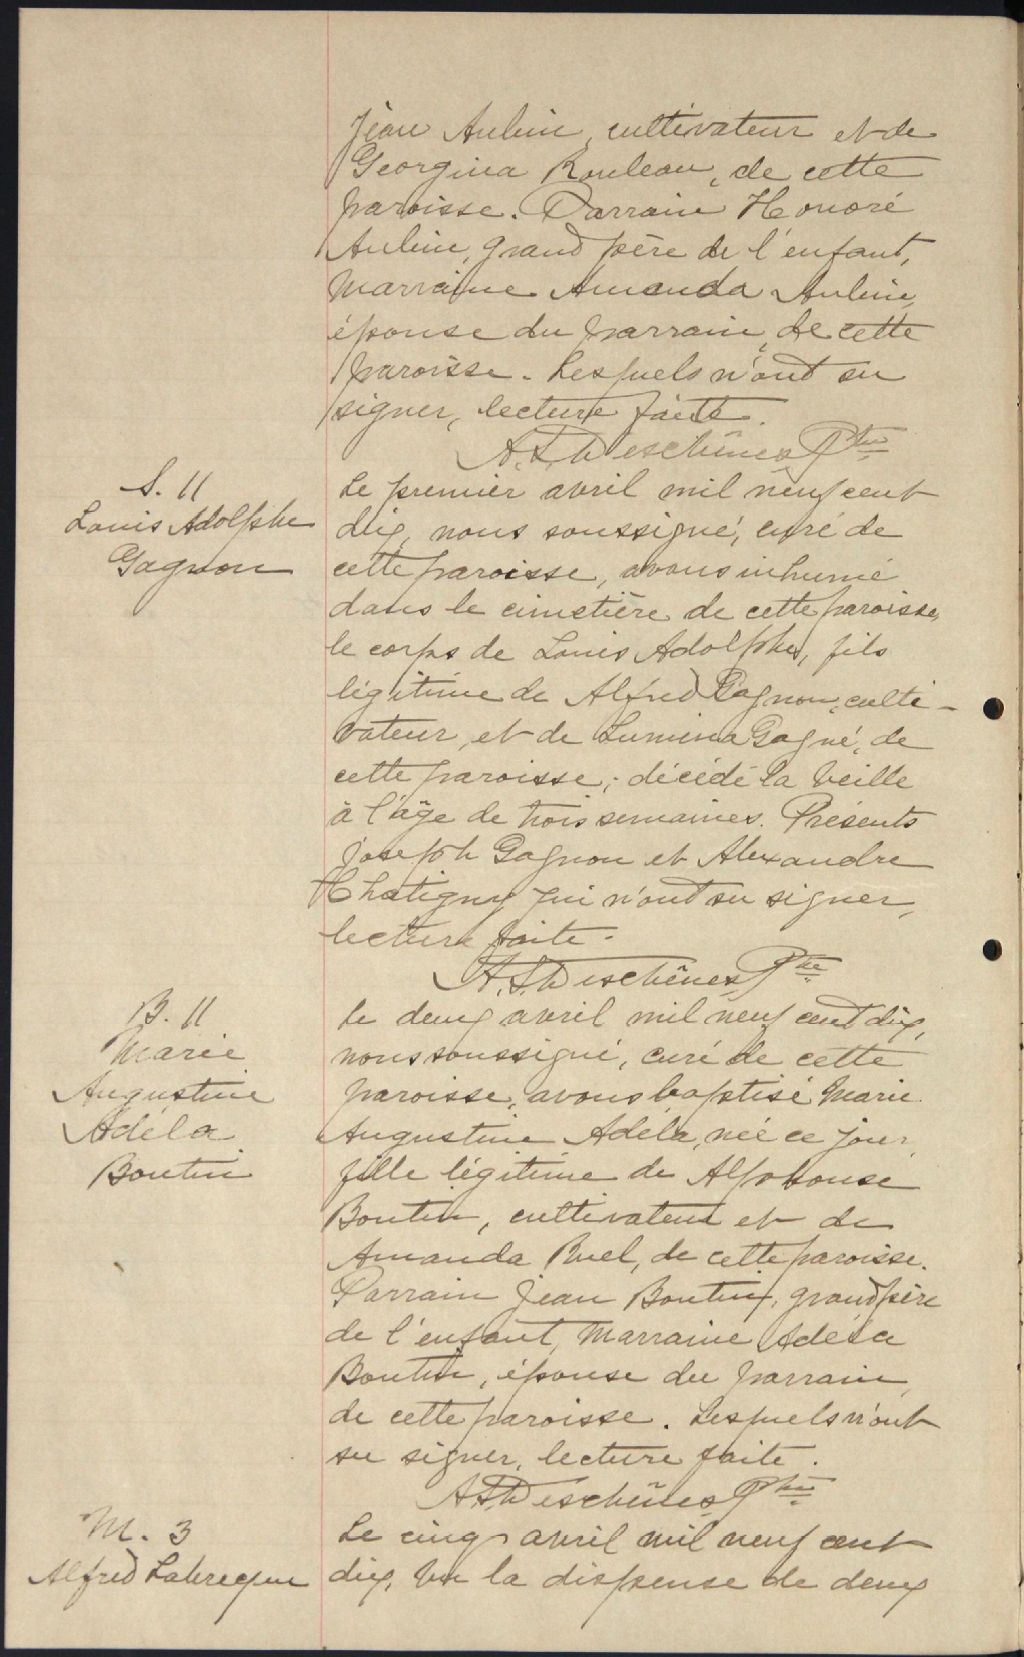 Jean Aubin, cultivateur et de
Georgina Rouleau, de cette
paroisse. Parrain Honoré
Aubin, grand père de l'enfant,
Marraine Amanda Aubin,
épouse du parrain, de cette
paroisse. Lesquels n'ont su
signer, lecture faite.
A. S. Deschênes Ptre
S. 11
Louis Adolphe
Gagnon
Le premier avril mil neuf cent
dix, nous soussigné, curé de
cette paroisse, avons inhumé
dans le cimetière de cette paroisse,
le corps de Louis Adolphe, fils
légitime de Alfred Gagnon, culti-
vateur, et de Lumina Gagné, de
cette paroisse; décédé la veille
à l'âge de trois semaines. Présents
Joseph Gagnon et Alexandre
Chatigny qui n'ont su signer,
lecture faite.
A. S. Deschênes, Ptre
B. 11
Marie
Augustine
Adéla
Boutin
Le deux avril mil neuf cent dix,
nous soussigné, curé de cette
paroisse, avons baptisé Marie
Augustine Adéla, née ce jour,
fille légitime de Alphonse
Boutin, cultivateur et de
Amanda Ruel, de cette paroisse.
Parrain Jean Boutin, grand père
de l'enfant, Marraine Adéla
Boutin, épouse du parrain,
de cette paroisse. Lesquels n'ont
su signer, lecture faite.
A. S. Deschênes Ptre
M. 3
Alfred Labrecque
Le cinq avril mil neuf cent
dix, vu la dispense de deux